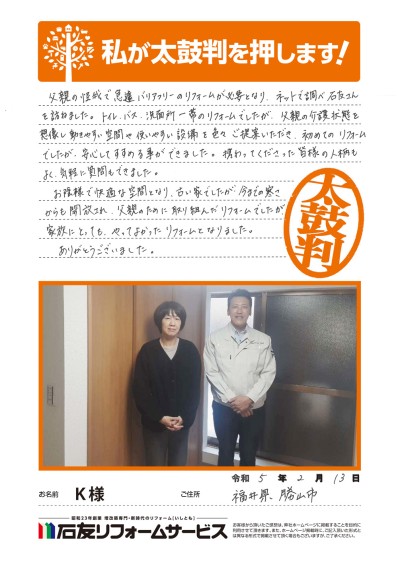 私が太鼓判を押します!
父親の怪我で急遽バリアフリーのリフォームが必要となり、ネットで調べ石友さん
を訪ねました。トイレ、バス、洗面所一帯のリフォームでしたが、父親の介護状態を
想像し動きやすい空間や使いやすい設備を色々ご提案いただき、初めてのリフォーム
でしたが、安心してすすめる事ができました。携わってくださった皆様の人柄も
よく、気軽に質問もできました。
お陰様で快適な空間となり、古い家でしたが今までの寒さ
からも開放され、父親のために取り組んだリフォームでしたが
家族にとっても、やってよかったリフォームとなりました。
ありがとうございました。
太鼓判
令和 5年 2月 13日
お名前 K様 ご住所 福井県勝山市
昭和23年創業 増改築専門・新時代のリフォーム[いしとも]
石友リフォームサービス
お客様から頂いたご感想は、弊社ホームページに掲載することを目的に
利用させて頂きます。また、ホームページ掲載時に、ご記入頂いた形式と
は異なる形式で掲載させて頂く場合もございますが、ご了承ください。